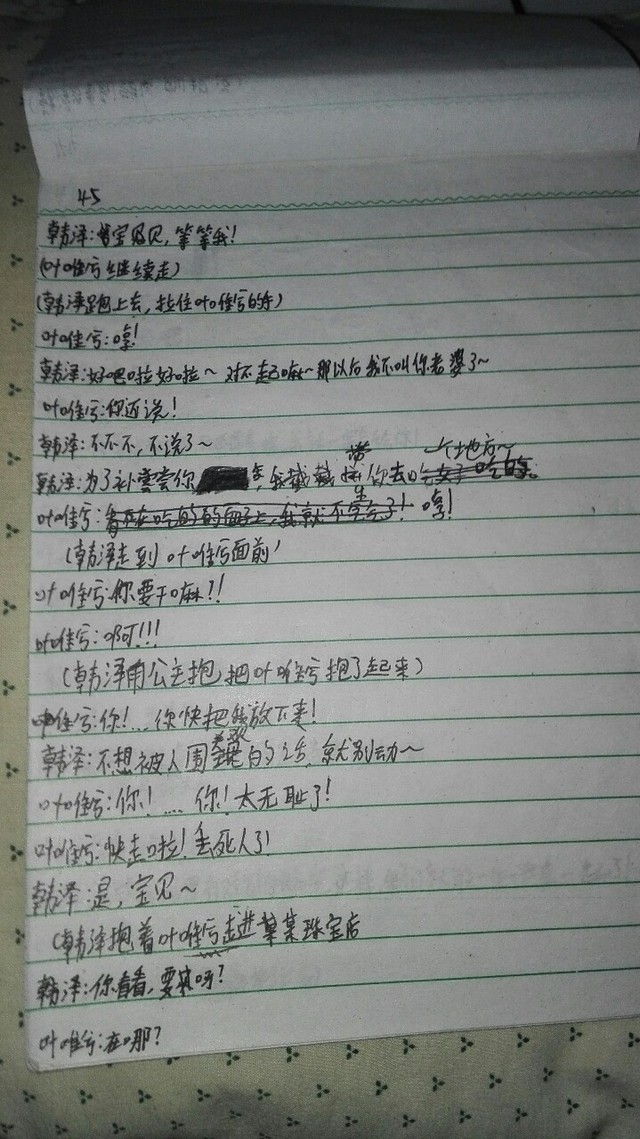 45
韩泽:宝贝,等等我!
(叶唯兮继续走)
(韩泽跑上去,拉住叶唯兮的手)
叶唯兮:哼!
韩泽:好吧啦好啦~对不起嘛~那以后我不叫你老婆了~
叶唯兮:你还说!
韩泽:不不不,不说了~
韩泽:为了补偿你,我带你去个地方~
叶唯兮:哼!
(韩泽走到叶唯兮面前)
叶唯兮:你要干嘛?!
叶唯兮:啊!!!
(韩泽用公主抱,把叶唯兮抱了起来)
叶唯兮:你!...你快把我放下来!
韩泽:不想被人围观的话,就别动~
叶唯兮:你!....你!太无耻了!
叶唯兮:快走啦!丢死人了!
韩泽:是,宝贝~
(韩泽抱着叶唯兮走进某某珠宝店
韩泽:你看看,要哪个?
叶唯兮:在哪?